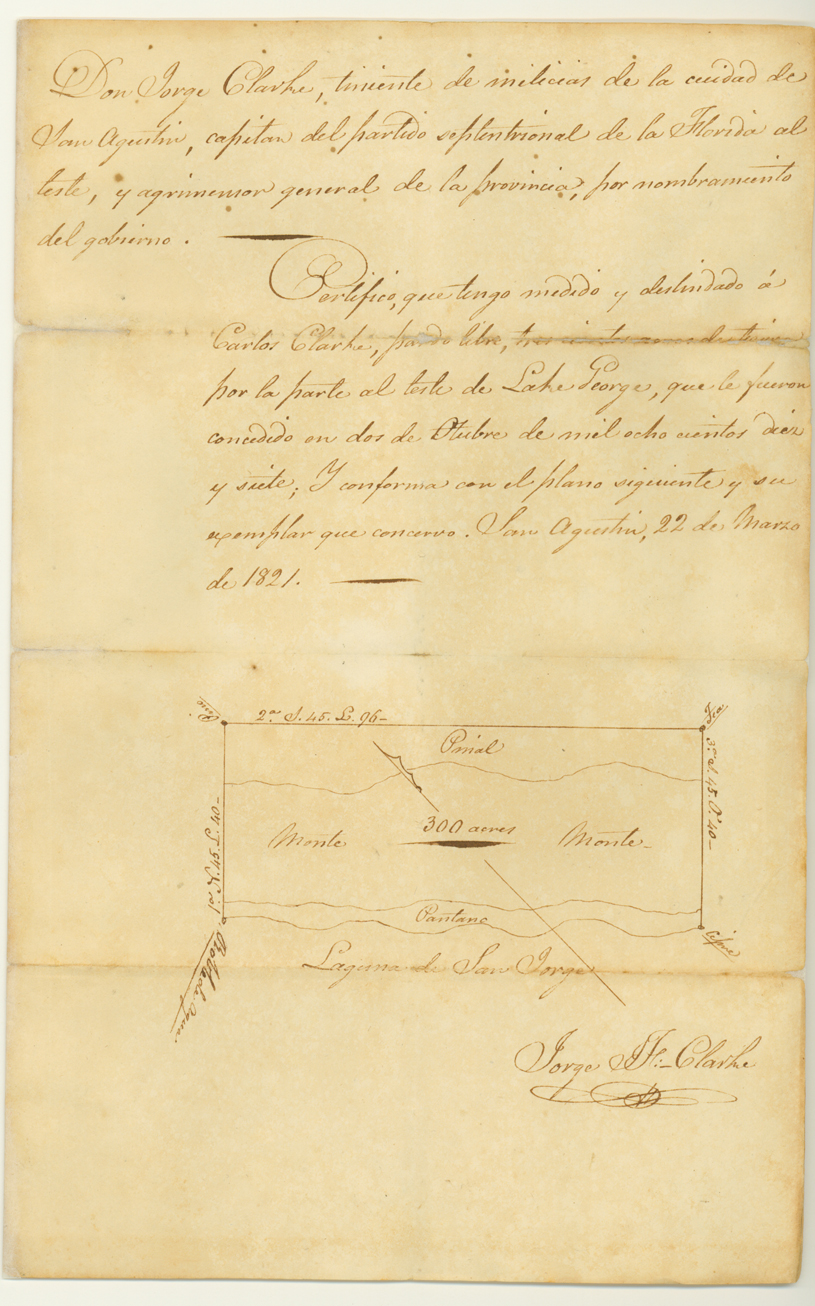 Don Jorge Clarke, tiniente de milicias de la cuidad de
San Agustin, capitan del partido septentrional de la Florida al
leste, y agrimensor general de la provincia, por nombramiento
del gobierno.
Certifico, que tengo medido y deslindado á
Carlos Clarke, pardo libre, tres cientos acres de tierra
por la parte al leste de Lake George, que le fueron
concedido en dos de Otubre de mil ocho cientos diez
y siete; Y conforma con el plano siguiente y su
exemplar que concervo. San Agustin, 22 de Marzo
de 1821.
Pino
2a. S. 45. L. 96-
Pinal
3a. S. 45. O. 40-
300 acres
Monte
Monte-
1a. N. 45. L. 40-
Pantano
Roble de Agua
Cipre
Laguna de San Jorge
Jorge J. F. - Clarke